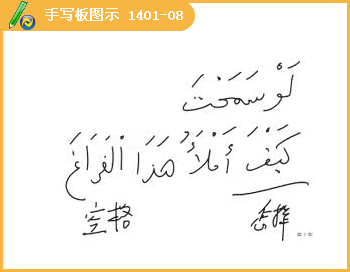 手写板图示 1401-08
لَوْ سَمَحْتَ
كَيْفَ أَمْلَأُ هَذَا الْفَرَاغَ
空格 怎样